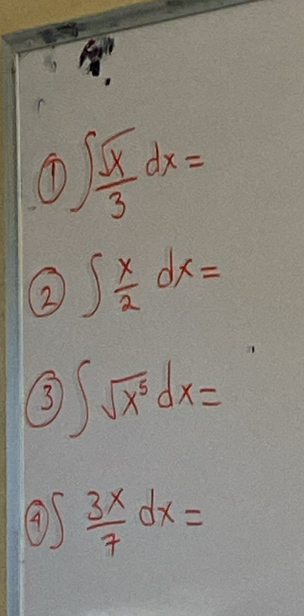 ① ∫ √x/3 dx =
② ∫ x/2 dx =
③ ∫ √x⁵ dx =
④ ∫ 3x/7 dx =